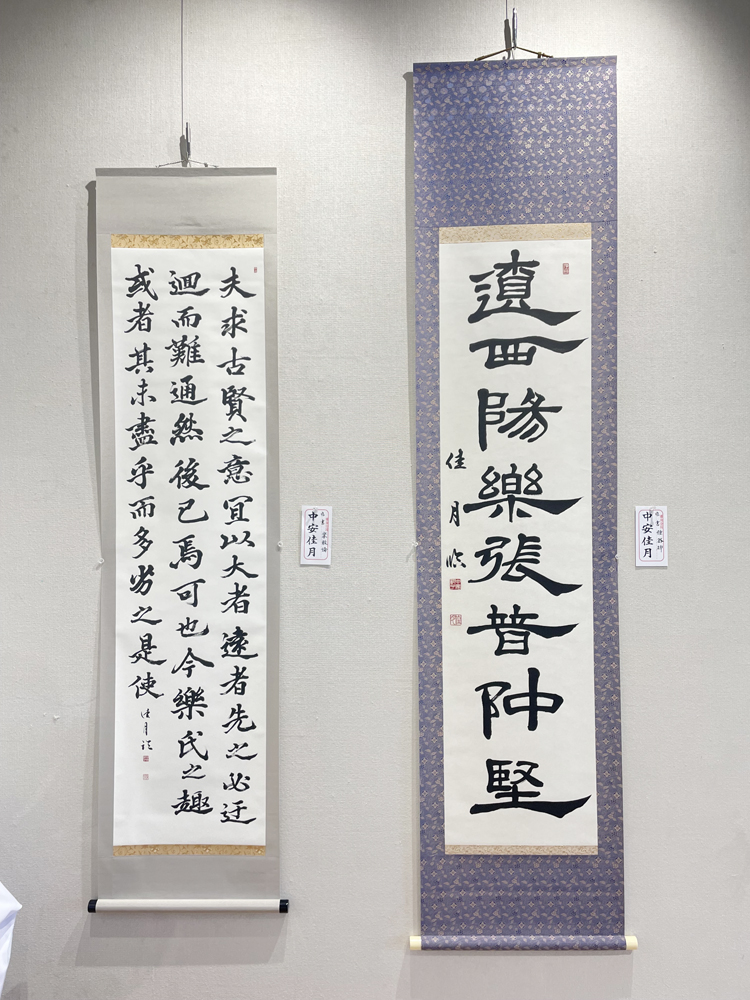 遼西陽樂張普仲堅
佳月臨
中安佳月
夫求古賢之意宜以大者遠者先之必迂
迴而難通然後已焉可也今樂氏之趣
或者其未盡乎而多劣之是使
佳月臨
中安佳月